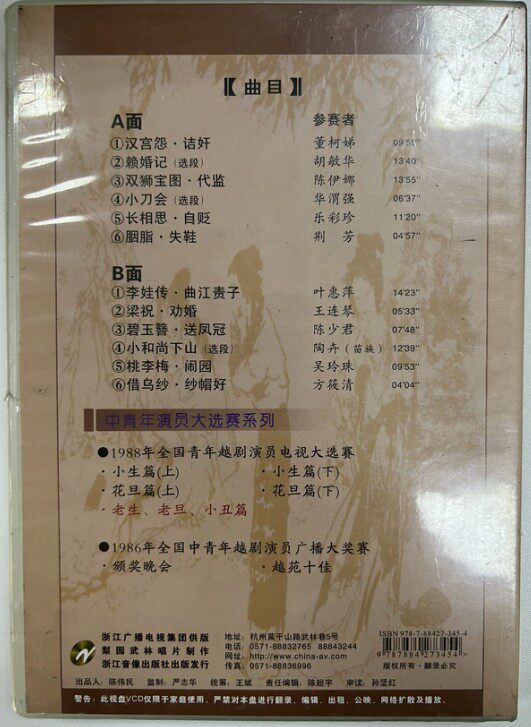 【曲目】
A面 参赛者
①汉宫怨·诘奸 董柯娣 09'58"
②赖婚记(选段) 胡敏华 13'40"
③双狮宝图·代监 陈伊娜 13'55"
④小刀会(选段) 华渭强 06'37"
⑤长相思·自贬 乐彩珍 11'20"
⑥胭脂·失鞋 荆芳 04'57"
B面
①李娃传·曲江责子 叶惠萍 14'23"
②梁祝·劝婚 王连琴 05'33"
③碧玉簪·送凤冠 陈少君 07'48"
④小和尚下山(选段) 陶卉(苗族) 12'39"
⑤桃李梅·闹园 吴玲珠 09'53"
⑥借乌纱·纱帽好 方筱清 04'04"
中青年演员大选赛系列
●1988年全国青年越剧演员电视大选赛
·小生篇(上) ·小生篇(下)
·花旦篇(上) ·花旦篇(下)
·老生、老旦、小丑篇
●1986年全国中青年越剧演员广播大奖赛
·颁奖晚会 ·越苑十佳
浙江广播电视集团供版
梨园武林唱片制作
浙江音像出版社出版发行
地址:杭州莫干山路武林巷5号
电话:0571-88832765 88843244
网址:http://www.china-av.com
传真:0571-88836996
ISBN 978-7-88427-345-4
9 787884 273454 >
版权所有·翻录必究
出品人:陈伟民 监制:严志华 统筹:王斌 责任编辑:陈超宇 审读:孙坚红
警告:此视盘VCD仅限于家庭使用。严禁对本盘进行翻录、编辑、出租、公映、网络扩散及播放。